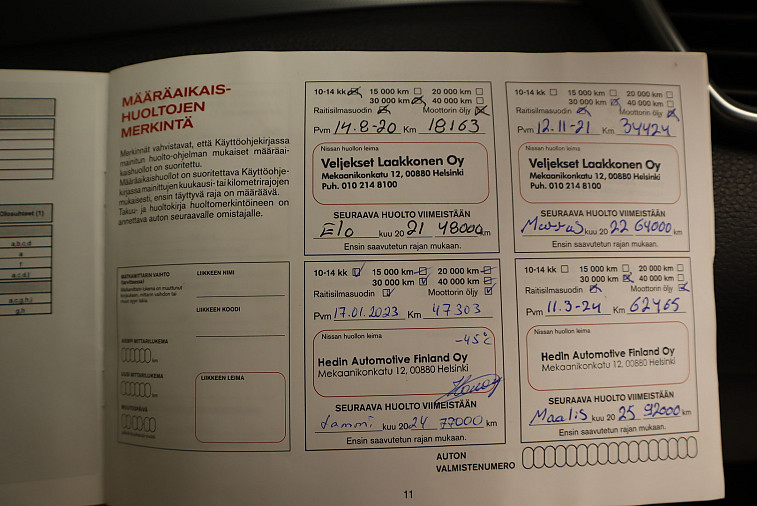 Olosuhteet (1)
a,b,c,d
a
f
a,c,d,i
a,c,g,h,i
g,h
MÄÄRÄAIKAIS-
HUOLTOJEN
MERKINTÄ
Merkinnät vahvistavat, että Käyttöohjekirjassa
mainitun huolto-ohjelman mukaiset määräai-
kaishuollot on suoritettu.
Määräaikaishuollot on suoritettava Käyttöohje-
kirjassa mainittujen kuukausi- tai kilometrirajojen
mukaisesti, ensin täyttyvä raja on määräävä.
Takuu- ja huoltokirja huoltomerkintöineen on
annettava auton seuraavalle omistajalle.
MATKAMITTARIN VAIHTO
LIIKKEEN NIMI
LIIKKEEN KOODI
LIIKKEEN LEIMA
km
km
10-14 kk 15 000 km 20 000 km
30 000 km 40 000 km
Raitisilmasuodin Moottorin öljy
Pvm 14.8-20 Km 18163
Nissan huollon leima
Veljekset Laakkonen Oy
Mekaanikonkatu 12, 00880 Helsinki
Puh. 010 214 8100
SEURAAVA HUOLTO VIIMEISTÄÄN
Elo kuu 20 21 48000 km
Ensin saavutetun rajan mukaan.
10-14 kk 15 000 km 20 000 km
30 000 km 40 000 km
Raitisilmasuodin Moottorin öljy
Pvm 12.11-21 Km 34424
Nissan huollon leima
Veljekset Laakkonen Oy
Mekaanikonkatu 12, 00880 Helsinki
Puh. 010 214 8100
SEURAAVA HUOLTO VIIMEISTÄÄN
Marras kuu 20 22 64000 km
Ensin saavutetun rajan mukaan.
10-14 kk 15 000 km 20 000 km
30 000 km 40 000 km
Raitisilmasuodin Moottorin öljy
Pvm 17.01.2023 Km 47303
Nissan huollon leima
-45°C
Hedin Automotive Finland Oy
Mekaanikonkatu 12, 00880 Helsinki
SEURAAVA HUOLTO VIIMEISTÄÄN
Tammi kuu 20 24 77000 km
Ensin saavutetun rajan mukaan.
10-14 kk 15 000 km 20 000 km
30 000 km 40 000 km
Raitisilmasuodin Moottorin öljy
Pvm 11.3-24 Km 62465
Nissan huollon leima
Hedin Automotive Finland Oy
Mekaanikonkatu 12, 00880 Helsinki
SEURAAVA HUOLTO VIIMEISTÄÄN
Maalis kuu 20 25 92000 km
Ensin saavutetun rajan mukaan.
AUTON
VALMISTENUMERO
11